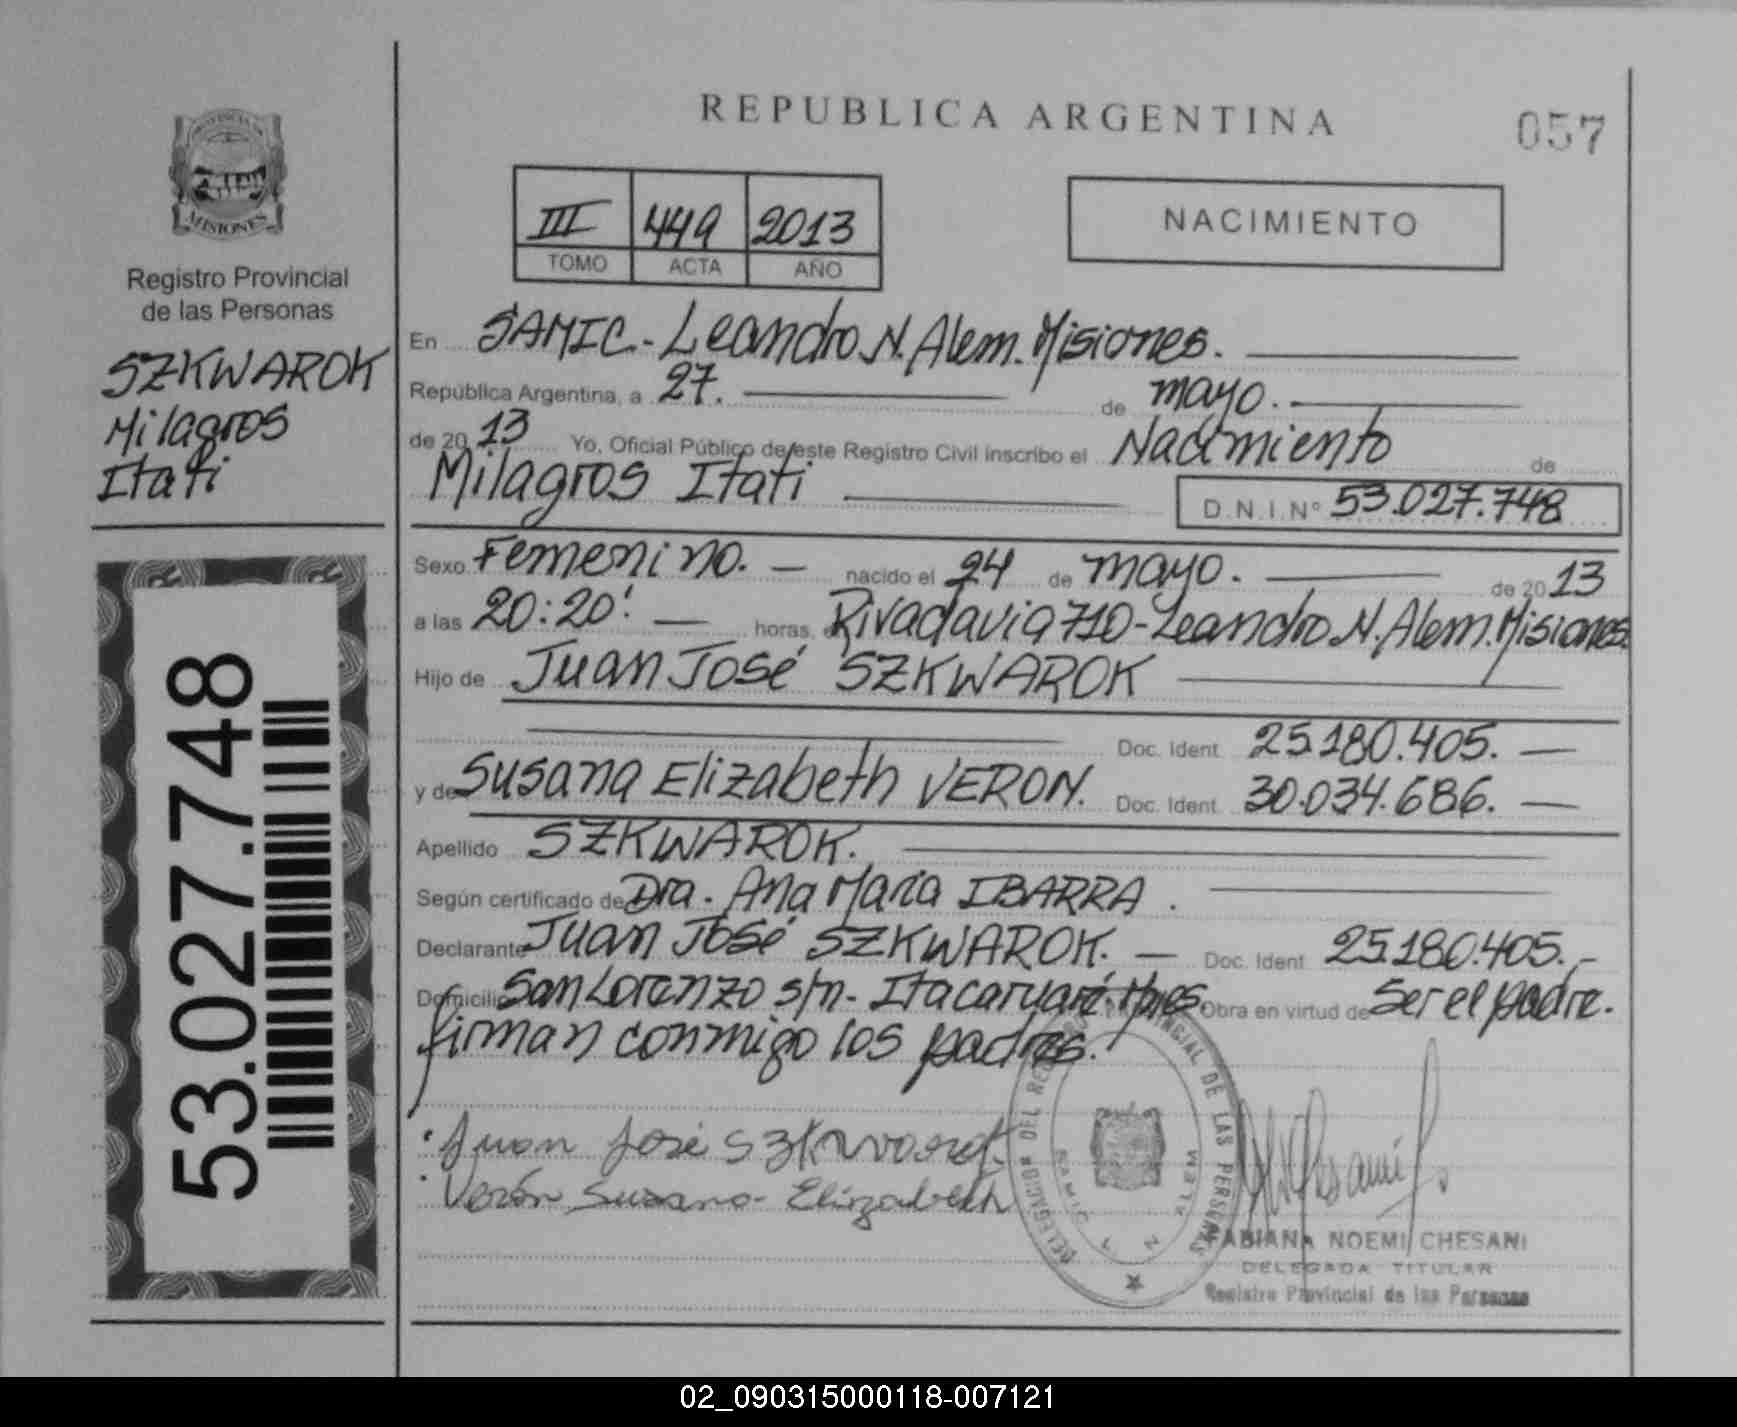 REPUBLICA ARGENTINA
057
PROVINCIA DE
MISIONES
Registro Provincial
de las Personas
SZKWAROK
Milagros
Itati
53.027.748
III 449 2013
TOMO ACTA AÑO
NACIMIENTO
En SAMIC - Leandro N. Alem. Misiones.
República Argentina, a 27. de mayo.
de 20 13 Yo, Oficial Público de este Registro Civil inscribo el Nacimiento de
Milagros Itati D.N.I.N° 53.027.748
Sexo Femenino. nacido el 24 de mayo. de 20 13
a las 20:20' horas, Rivadavia 710 - Leandro N. Alem. Misiones.
Hijo de Juan José SZKWAROK
Doc. Ident. 25.180.405.
y de Susana Elizabeth VERON. Doc. Ident. 30.034.686.
Apellido SZKWAROK.
Según certificado de Dra. Ana Maria IBARRA.
Declarante Juan José SZKWAROK. Doc. Ident. 25.180.405.
Domicilio San Lorenzo s/n - Itacaruaré. Mnes. Obra en virtud de Ser el padre.
firman conmigo los padres.
Juan José Szkwarok
Verón Susana Elizabeth
DELEGACION DEL REGISTRO PROVINCIAL DE LAS PERSONAS
SAMIC L N ALEM
FABIANA NOEMI CHESANI
DELEGADA TITULAR
Registro Provincial de las Personas
02_090315000118-007121